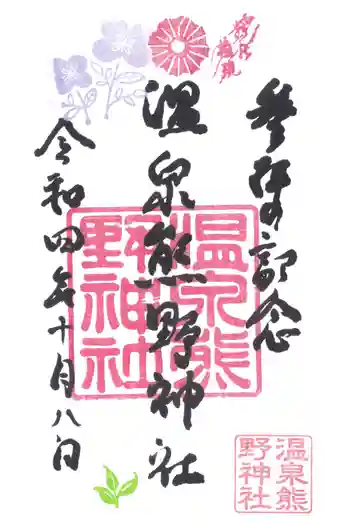 参拝記念
温泉熊野神社
令和四年十月八日
温泉熊
野神社
温泉熊
野神社